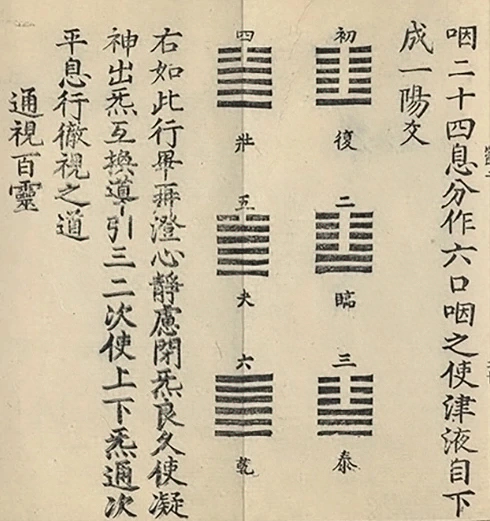 咽二十四息分作六口咽之使津液自下
成一陽爻
初
復
二
臨
三
泰
四
壯
五
夬
六
乾
右如此行畢再澄心靜慮閉炁良久使凝
神出炁互換導引三二次使上下炁通次
平息行徹視之道
通視百靈